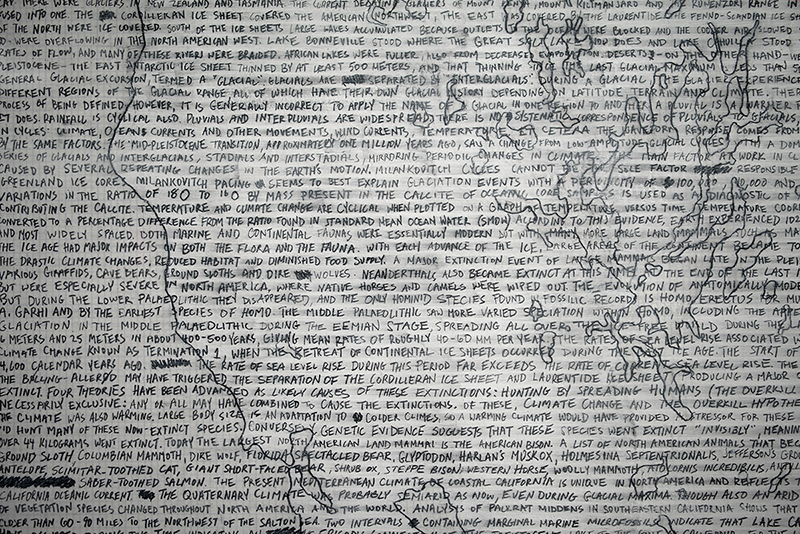 THERE WERE GLACIERS IN NEW ZEALAND AND TASMANIA. THE CURRENT DECAYING GLACIERS OF MOUNT KENYA, MOUNT KILIMANJARO AND RUWENZORI RANGE IN
FUSED INTO ONE THE CORDILLERAN ICE SHEET COVERED THE AMERICAN NORTHWEST, THE EAST COVERED THE LAURENTIDE. THE FENNO-SCANDIAN ICE SH
OF THE NORTH WERE ICE-COVERED. SOUTH OF THE ICE SHEETS LARGE LAKES ACCUMULATED BECAUSE OUTLETS WERE BLOCKED AND THE COOLER AIR SLOWED
D WERE OVERFLOWING IN THE NORTH AMERICAN WEST. LAKE BONNEVILLE STOOD WHERE THE GREAT SALT LAKE NOW DOES AND LAKE STOOD
RATES OF FLOW, AND MANY OF THESE RIVERS WERE BRAIDED. AFRICAN LAKES WERE FULLER, ALSO FROM DECREASED EVAPORATION. DESERTS - ON THE OTHER HAND - WE
PLEISTOCENE. THE EAST ANTARCTIC ICE SHEET THINNED BY AT LEAST 500 METERS, AND THAT THINNING SINCE THE LAST GLACIAL MAXIMUM IS
GENERAL GLACIAL EXCURSION, TERMED A "GLACIAL". GLACIALS ARE SEPARATED BY "INTERGLACIALS". DURING A GLACIAL, THE GLACIER EXPERIENCE
DIFFERENT REGIONS OF GLACIAL RANGE, ALL OF WHICH HAVE THEIR OWN GLACIAL HISTORY DEPENDING ON LATITUDE, TERRAIN AND CLIMATE. THERE
PROCESS OF BEING DEFINED. HOWEVER, IT IS GENERALLY INCORRECT TO APPLY THE NAME OF A GLACIAL IN ONE REGION TO ANOTHER. A PLUVIAL IS A WARMER
ET DOES. RAINFALL IS CYCLICAL ALSO. PLUVIALS AND INTERPLUVIALS ARE WIDESPREAD. THERE IS NO SYSTEMATIC CORRESPONDENCE OF PLUVIALS TO GLACIALS,
IN CYCLES: CLIMATE, OCEANS CURRENTS AND OTHER MOVEMENTS, WIND CURRENTS, TEMPERATURE, ET CETERA. THE WAVEFORM RESPONSE COMES FROM
BY THE SAME FACTORS. THE MID-PLEISTOCENE TRANSITION, APPROXIMATELY ONE MILLION YEARS AGO, SAW A CHANGE FROM LOW-AMPLITUDE GLACIAL CYCLES WITH A DOM
SERIES OF GLACIALS INTERGLACIALS, STADIALS AND INTERSTADIALS, MIRRORING PERIODIC CHANGES IN CLIMATE. THE MAIN FACTOR AT WORK IN CL
CAUSED BY SEVERAL REPEATING CHANGES IN THE EARTH'S MOTION. MILANKOVITCH CYCLES CANNOT BE THE SOLE FACTOR RESPONSIBLE
GREENLAND ICE CORES, MILANKOVITCH PACING SEEMS TO BEST EXPLAIN GLACIATION EVENTS WITH A PERIODICITY OF 100,000 AND
VARIATIONS IN THE RATIO OF 18O TO 16O BY MASS PRESENT IN THE CALCITE OF OCEANIC CORE SAMPLES IS USED AS A DIAGNOSTIC OF
CONTRIBUTING THE CALCITE. TEMPERATURE AND CLIMATE CHANGE ARE CYCLICAL WHEN PLOTTED ON A GRAPH OF TEMPERATURE VERSUS TIME. TEMPERATURE COOR
CONVERTED TO A PERCENTAGE DIFFERENCE FROM THE RATIO FOUND IN STANDARD MEAN OCEAN WATER (SMOW). ACCORDING TO THIS EVIDENCE, EARTH EXPERIENCED 102
AND MOST WIDELY SPACED. BOTH MARINE AND CONTINENTAL FAUNAS WERE ESSENTIALLY MODERN BUT WITH MANY MORE LARGE LAND MAMMALS SUCH AS MA
THE ICE AGE HAD MAJOR IMPACTS IN BOTH THE FLORA AND THE FAUNA. WITH EACH ADVANCE OF THE ICE, LARGE AREAS OF THE CONTINENT BECAME TO
THE DRASTIC CLIMATE CHANGES, REDUCED HABITAT AND DIMINISHED FOOD SUPPLY. A MAJOR EXTINCTION EVENT OF LARGE MAMMALS BEGAN LATE IN THE PLEIS
VARIOUS GIRAFFIDS, CAVE BEARS, GROUND SLOTHS AND DIRE WOLVES. NEANDERTHALS ALSO BECAME EXTINCT AT THIS TIME. AT THE END OF THE LAST I
BUT WERE ESPECIALLY SEVERE IN NORTH AMERICA, WHERE NATIVE HORSES AND CAMELS WERE WIPED OUT. THE EVOLUTION OF ANATOMICALLY MODER
BUT DURING THE LOWER PALEOLITHIC THEY DISAPPEARED, AND THE ONLY HOMINID SPECIES FOUND IN FOSSILIC RECORDS IS HOMO ERECTUS FOR MU
A. GARHII AND BY THE EARLIEST SPECIES OF HOMO. THE MIDDLE PALAEOLITHIC SAW MORE VARIED SPECIATION WITHIN HOMO, INCLUDING THE APPE
GLACIATION IN THE MIDDLE PALAEOLITHIC DURING THE EEMIAN STAGE, SPREADING ALL OVER THE ICE-FREE WORLD DURING THE
6 METERS AND 25 METERS IN ABOUT 400-500 YEARS, GIVING MEAN RATES OF ROUGHLY 40-60 MM PER YEAR. THE RATES OF SEA RISE ASSOCIATED W
CLIMATE CHANGE KNOWN AS TERMINATION 1, WHEN THE RETREAT OF CONTINENTAL ICE SHEETS OCCURRED DURING THE ICE AGE. THE START OF
14,600 CALENDAR YEARS AGO. THE RATE OF SEA LEVEL RISE DURING THIS PERIOD FAR EXCEEDS THE RATE OF CURRENT SEA LEVEL RISE. THE
THE BØLLING-ALLERØD MAY HAVE TRIGGERED THE SEPARATION OF THE CORDILLERAN ICE SHEET AND LAURENTIDE ICE SHEET PRODUCING A MAJOR C
EXTINCT. FOUR THEORIES HAVE BEEN ADVANCED AS LIKELY CAUSES OF THESE EXTINCTIONS: HUNTING BY SPREADING HUMANS (THE OVERKILL
NECESSARILY EXCLUSIVE: ANY OR ALL MAY HAVE COMBINED TO CAUSE THE EXTINCTIONS. OF THESE, CLIMATE CHANGE AND THE OVERKILL HYPOTHE
THE CLIMATE WAS ALSO WARMING. LARGE BODY SIZE IS AN ADAPTATION TO COLDER CLIMES, SO A WARMING CLIMATE WOULD HAVE PROVIDED A STRESSOR FOR THESE
DID HUNT MANY OF THESE NOW-EXTINCT SPECIES. CONVERSELY, GENETIC EVIDENCE SUGGESTS THAT THESE SPECIES WENT EXTINCT "INVISIBLY", MEANING
OVER 44 KILOGRAMS WENT EXTINCT. TODAY THE LARGEST NORTH AMERICAN LAND MAMMAL IS THE AMERICAN BISON. A LIST OF NORTH AMERICAN ANIMALS THAT BEC
GROUND SLOTH, COLUMBIAN MAMMOTH, DIRE WOLF, FLORIDA SPECTACLED BEAR, GLYPTODON, HARLAN'S MUSKOX, HOLMESINA SEPTENTRIONALIS, JEFFERSON'S GROUND
ANTELOPE, SCIMITAR-TOOTHED CAT, GIANT SHORT-FACED BEAR, SHRUB OX, STEPPE BISON, WESTERN HORSE, WOOLLY MAMMOTH, AIOLORNIS INCREDIBILIS, AND
SABER-TOOTHED SALMON. THE PRESENT MEDITERRANEAN CLIMATE OF COASTAL CALIFORNIA IS UNIQUE IN NORTH AMERICA AND REFLEC
CALIFORNIA OCEANIC CURRENT. THE QUATERNARY CLIMATE PROBABLY SEMIARID AS NOW, EVEN DURING GLACIAL MAXIMA THOUGH ALSO AN ARID
OF VEGETATION SPECIES CHANGED THROUGHOUT NORTH AMERICA AND THE WORLD. ANALYSIS OF PACKRAT MIDDENS IN SOUTHEASTERN CALIFORNIA SHOWS THAT
CLOSER THAN 60-90 MILES TO THE NORTHWEST OF THE SALTON SEA. TWO INTERVALS CONTAINING MARGINAL MARINE MICROFOSSILS INDICATE THAT LAKE CA